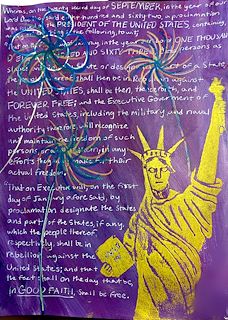 Whereas, on the twenty second day of SEPTEMBER, in the year of our
Lord one thousand eight hundred and sixty two, a proclamation
was issued by the PRESIDENT OF THE UNITED STATES, containing,
among other things, the following, to wit:
"That on the first day of January, in the year of our Lord ONE THOUSAND
EIGHT HUNDRED AND SIXTY THREE, all persons
State or designated part of a State
the people whereof shall then be in Rebellion against
the UNITED STATES, shall be then, thenceforth, and
FOREVER FREE; and the Executive Government of
the United States, including the military and naval
authority thereof, will recognize
and maintain the freedom of such
persons, or any of them, in any
efforts they may make for their
actual freedom.
"That on Executive will, on the first
day of January aforesaid, by
proclamation designate the States
and parts of the States, if any,
which the people thereof,
respectively, shall be in
rebellion against the
United States; and that
the fact shall on the day that be,
in GOOD FAITH, shall be free.